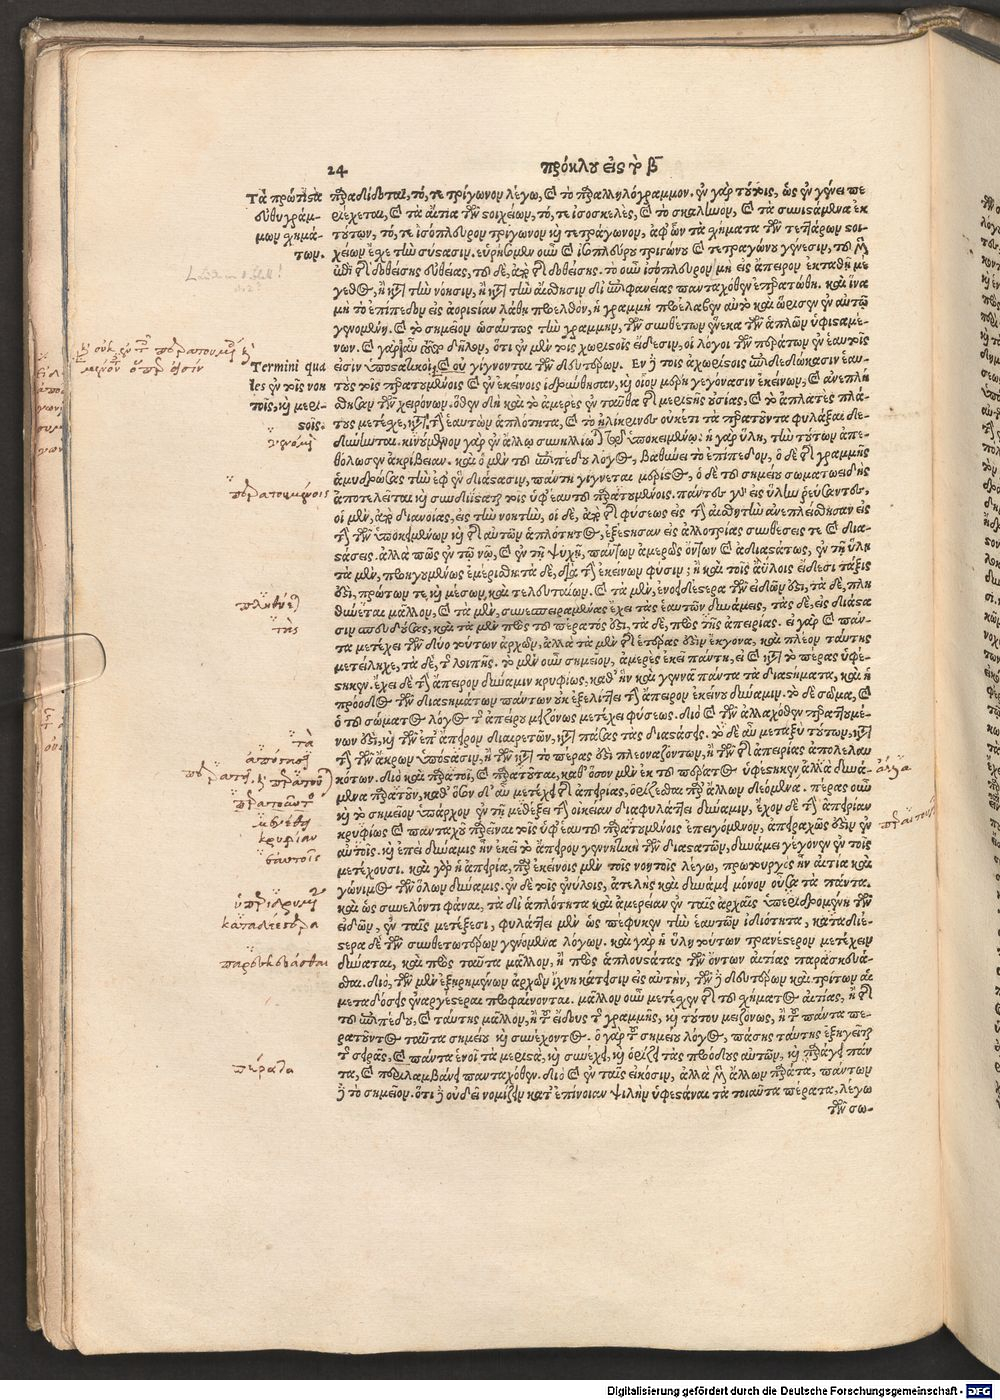 24 πρόκλου εἰς τὸ β
Τὰ πρώτιστα
εὐθυγράμ-
μων σχημά-
των.
Termini qua
les ἐν τοῖς νοη
τοῖς, καὶ μερι-
στοῖς.
παραδίδοται, τό, τε τρίγωνον λέγω, καὶ τὸ παραλληλόγραμμον. ἐν γὰρ τούτοις, ὡς ἐν γένει πε
ριέχεται, καὶ τὰ αἴτια τῶν στοιχείων, τό, τε ἰσοσκελὲς, καὶ τὸ σκαληνὸν, καὶ τὰ συνιστάμενα ἐκ
τούτων, τό, τε ἰσόπλευρον τρίγωνον καὶ τετράγωνον, ἀφ' ὧν τὰ σχήματα τῶν τεττάρων στοι-
χείων ἔσχε τὴν σύστασιν. εὑρήσομεν οὖν καὶ ἰσοπλεύρου τριγώνου καὶ τετραγώνου γένεσιν, τοῦ μὲν
ἐπὶ τῆς δοθείσης εὐθείας, τοῦ δὲ, ἀπὸ τῆς δοθείσης. τὸ οὖν
μὴ τὸ ἐπίπεδον εἰς ἀοριστίαν λάθῃ προελθὸν, ἡ γραμμὴ προελαβεν αὐτὸ καὶ ὥρισεν ἐν αὐτῷ
γενομένη. καὶ τὸ σημεῖον ὡσαύτως τὴν γραμμὴν, τῶν συνθέτων ἕνεκα τῶν ἁπλῶν ὑφισταμέ-
νων. καὶ γὰρ αὖ τοῦτο δῆλον, ὅτι ἐν μὲν τοῖς χωριστοῖς εἴδεσιν, οἱ λόγοι τῶν περάτων ἐν ἑαυτοῖς
εἰσὶν ὑποστατικοὶ, καὶ οὐ γίγνονται τῶν δευτέρων. Εν δὲ τοῖς ἀχωρίστοις ἐπιδεδώκασιν ἑαυ-
τοὺς τοῖς περατουμένοις καὶ ἐν ἐκείνοις ἱδρύνθησαν, καὶ οἷον μέρη γεγόνασιν ἐκείνων, καὶ ἀνεπλή
σθησαν τῶν χειρόνων. ὅθεν δὴ καὶ τὸ ἀμερὲς ἐν ταῦθα τῆς μεριστῆς οὐσίας, καὶ τὸ ἀπλατὲς πλά-
τους μετέσχε, καὶ κατὰ τὴν ἑαυτῶν ἁπλότητα, καὶ τὸ εἰλικρινὲς οὐκέτι τὰ περατοῦντα φυλάξαι δε-
δύνηνται. κινούμενον γὰρ ἐν ἄλλῳ
βόλωσεν ἀκρίβειαν. καὶ ὁ μὲν τοῦ ἐπιπέδου λόγος, βαθύνει τὸ ἐπίπεδον, ὁ δὲ τῆς γραμμῆς
ἀμυδρώσας τὴν ἐφ' ἓν διάστασιν, πάντη γίγνεται μεριστὸς, ὁ δὲ τοῦ σημείου σωματοειδὴς
ἀποτελεῖται καὶ συνδιίσταται τοῖς ὑφ' ἑαυτοῦ περατουμένοις. πάντες γὰρ εἰς ὕλην ῥεύσαντες,
οἱ μὲν, ἀπὸ διανοίας, εἰς τὴν νοητὴν, οἱ δὲ, ἀπὸ τῆς φύσεως εἰς τὴν αἰσθητὴν ἀνεπλείσθησαν εἰς
τὴν τῶν ὑποκειμένων καὶ τῆς αὐτῶν ἁπλότητος, ἐξέστησαν εἰς ἀλλοτρίας συνθέσεις τε καὶ δια-
στάσεις. ἀλλὰ πῶς ἐν τῷ νῷ, καὶ ἐν τῇ ψυχῇ, πάντων ἀμερῶς ὄντων καὶ ἀδιαστάτως, ἐν τῇ ὕλῃ
τὰ μὲν, προηγουμένως ἐμερίσθη τὰ δὲ, διὰ τὴν ἐκείνων φύσιν; ἢ καὶ τοῖς ἀΰλοις εἴδεσι τάξις
ἐστὶ, πρώτων τε, καὶ μέσων, καὶ τελευταίων. καὶ τὰ μὲν, ἑνοειδέστερα τῶν εἰδῶν ἐστὶ, τὰ δὲ, πλη
θύνεται μᾶλλον, καὶ τὰ μὲν, συνεσπειραμένας ἔχει τὰς ἑαυτῶν δυνάμεις, τὰς δὲ, εἰς διάστα
σιν σπευδούσας, καὶ τὰ μὲν πρὸς τοῦ πέρατός ἐστι, τὰ δὲ, πρὸς τῆς ἀπειρίας. εἰ γὰρ καὶ πάν-
τα μετέχει τῶν δύο τούτων ἀρχῶν, ἀλλὰ τὰ μὲν τῆς ἑτέρας ἐστὶν ἔκγονα, καὶ πλέον ταύτης
μετείληχε, τὰ δὲ, τῆς λοιπῆς. τὸ μὲν οὖν σημεῖον, ἀμερές ἐκεῖ πάντη, εἰ καὶ κατὰ τὸ πέρας ὑφέ-
στηκεν. ἔχει δὲ τὴν ἄπειρον δύναμιν κρυφίως, καθ' ἣν καὶ γεννᾷ πάντα τὰ διαστήματα, καὶ ἡ
πρόοδος τῶν διαστημάτων πάντων οὐκ ἐξελίττει τὴν ἄπειρον ἐκείνου δύναμιν. τὸ δὲ σῶμα, καὶ
ὁ τοῦ σώματος λόγος τῆς ἀπείρου μειζόνως μετέχει φύσεως. διὸ καὶ τῶν ἀλλαχόθεν περατουμέ-
νων ἐστὶ, καὶ τῶν ἐπ' ἄπειρον διαιρετῶν, κατὰ πάσας τὰς διαστάσεις. τὸ δὲ αὖ μεταξὺ τούτων, κατὰ
τὴν τῶν ἄκρων ὑπόστασιν, ἢ τῶν κατὰ τὸ πέρας ἐστὶ πλεοναζόντων, ἢ τῶν τῆς ἀπειρίας ἀπολελαυ
κότων. διὸ καὶ περατοῖ, καὶ περατοῦται, καθ' ὅσον μὲν ἐκ τοῦ πέρατος ὑφέστηκεν ἄλλα δυνά-
μενα περατοῦν, καθ' ὅσον δ' αὖ μετέχει τῆς ἀπειρίας, ὁρίζεσθαι παρ' ἄλλων δεόμενα. πέρας οὖν
καὶ τὸ σημεῖον ὑπάρχον ἐν τῇ μεθέξει τὴν οἰκείαν διαφυλάττει δύναμιν, ἔχον δὲ τὴν ἀπειρίαν
κρυφίως καὶ πανταχοῦ παρεῖναι τοῖς ὑφ' ἑαυτοῦ περατουμένοις ἐπειγόμενον, ἀπειραχῶς ἐστὶν ἐν
αὐτοῖς. καὶ ἐπεὶ δύναμις ἦν ἐκεῖ τὸ ἄπειρον γεννητικὴ τῶν διαστατῶν, δυνάμει γέγονεν ἐν τοῖς
μετέχουσι. καὶ γὰρ ἡ ἀπειρία, παρ' ἐκείνοις μὲν τοῖς νοητοῖς λέγω, πρωτουργὸς ἦν αἰτία καὶ
γόνιμος τῶν ὅλων δύναμις. ἐν δὲ τοῖς ἐνύλοις, ἀτελὴς καὶ δυνάμει μόνον οὖσα τὰ πάντα.
καὶ ὡς συνελόντι φάναι, τὰ δι' ἁπλότητα καὶ ἀμερείαν ἐν ταῖς ἀρχαῖς ὑπεριδρυμένη τῶν
εἰδῶν, ἐν ταῖς μετέξεσι, φυλάττει μὲν ὡς πέφυκεν τὴν ἑαυτῶν ἰδιότητα, καταδιέ-
στερα δὲ τῶν συνθετωτέρων γενόμενα λόγων. καὶ γὰρ ἡ ὕλη τούτων τρανέστερον μετέχειν
δύναται, καὶ πρὸς ταῦτα μᾶλλον, ἢ πρὸς ἁπλουστάτας τῶν ὄντων αἰτίας παρασκευά-
σθαι. διὸ, τῶν μὲν ἐξῃρημένων ἀρχῶν ἴχνη κάτεισιν εἰς αὐτὴν, τῶν δὲ δευτέρων καὶ τρίτων αἱ
μεταδόσεις ἐναργέστεραι προφαίνονται. μᾶλλον οὖν μετέχει τῆς τοῦ σχήματος αἰτίας, ἢ τῆς
τοῦ ἐπιπέδου, καὶ ταύτης μᾶλλον, ἢ τοῦ εἴδους τῆς γραμμῆς, καὶ τούτου μειζόνως, ἢ τοῦ πάντα πε-
ρατοῦντος ταῦτα σημείου καὶ συνέχοντος. ὁ γὰρ τοῦ σημείου λόγος, πάσης ταύτης ἐξηγεῖται
τῆς σειρᾶς, καὶ πάντα ἑνοῖ τὰ μεριστὰ, καὶ συνέχει, καὶ ὁρίζει τὰς προόδους αὐτῶν, καὶ παράγει πάν
τα, καὶ περιλαμβάνει πανταχόθεν. διὸ καὶ ἐν ταῖς εἰκόσιν, ἄλλα μὲν ἄλλων πέρατα, πάντων
δὲ τὸ σημεῖον. ὅτι δὲ οὐ δεῖ νομίζειν κατ' ἐπίνοιαν ψιλὴν ὑφεστάναι τὰ τοιαῦτα πέρατα, λέγω
τῶν σω-
περατουμένοις
πληθύε
τὰς
τὰ
κρυφίαν
ἑαυτοῖς
καταδεέστερα
παρεσκευάσθαι
πέρατα
ἄλλα
Digitalisierung gefördert durch die Deutsche Forschungsgemeinschaft - DFG